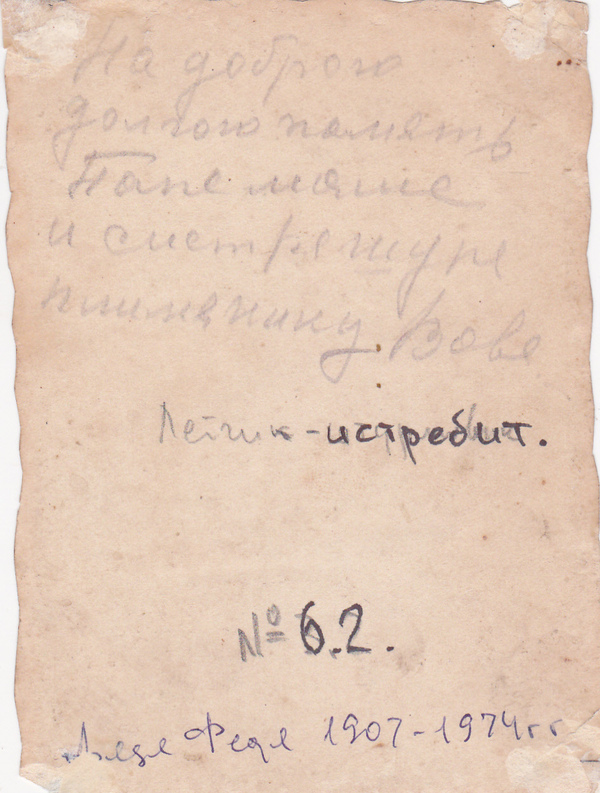 На доброю
долгою память
Папе маше
и систре шуре
плименику Вове
Летчик-истребит.
№ 6.2.
Дядя Федя 1907-1974г г